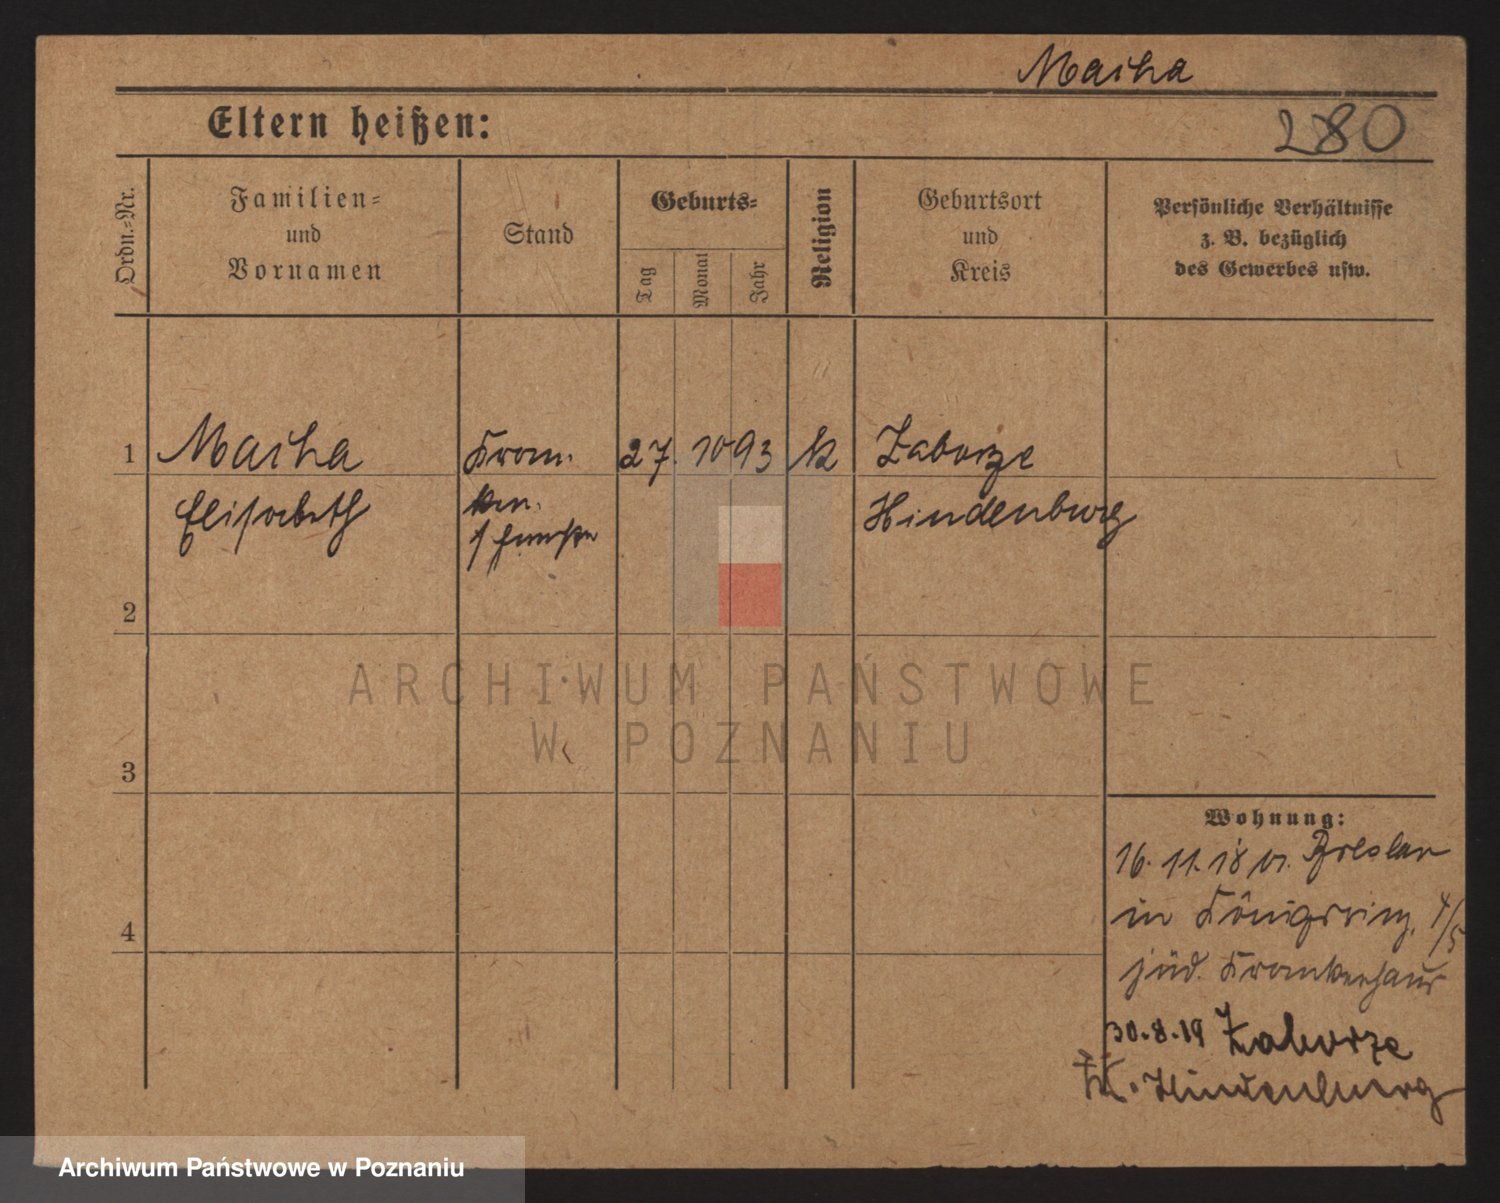 Macha
280
Eltern heißen:
Ordn.-Nr.
Familien-
und
Vornamen
Stand
Geburts-
Tag
Monat
Jahr
Religion
Geburtsort
und
Kreis
Persönliche Verhältnisse
z. B. bezüglich
des Gewerbes usw.
1
Macha
Kran-
27. 10 93
k
Zaborze
Elisabeth
ken-
Hindenburg
schwester
2
ARCHIWUM PAŃSTWOWE
W POZNANIU
3
Wohnung:
16. 11. 18 v. Breslau
4
in Königsring 4/5
jüd. Krankenhaus
30.8.19 Zaborze
Hindenburg
Archiwum Państwowe w Poznaniu